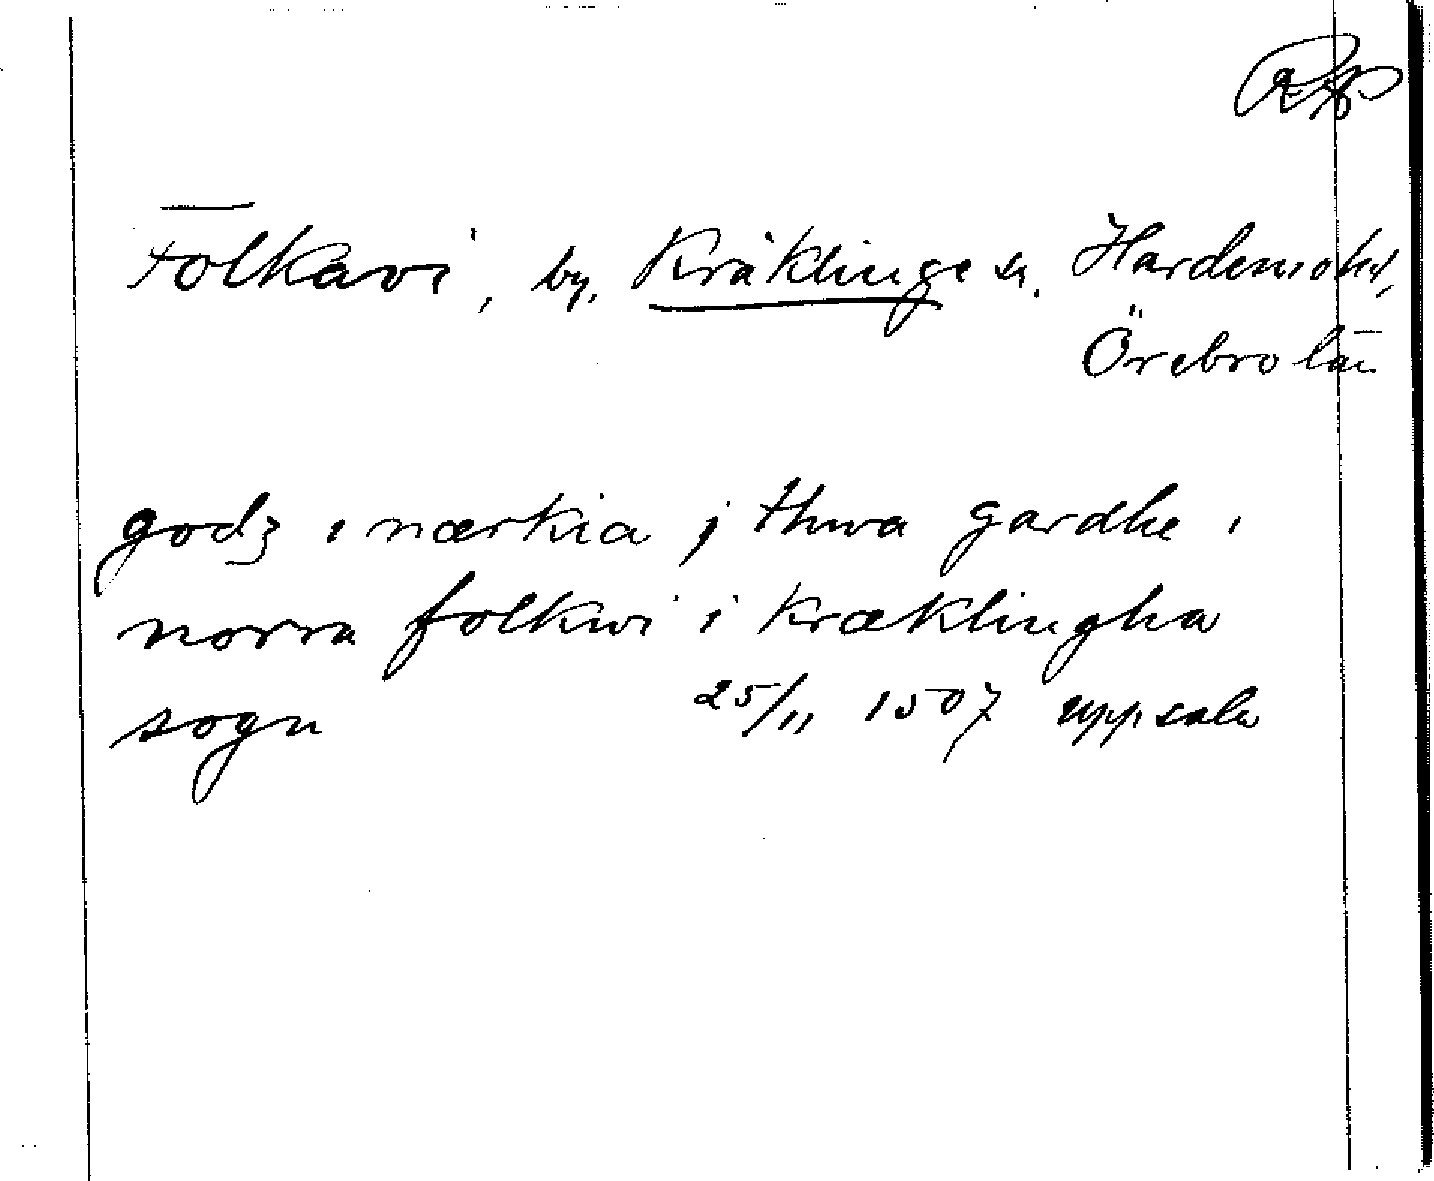 RAp
Folkavi, by, Kräklinge sn. Hardemo hd,
Örebro län
godz i nærkia j thwa gardhe i
norra folkwi i kræklingha
sogn 25/11 1507 Uppsala